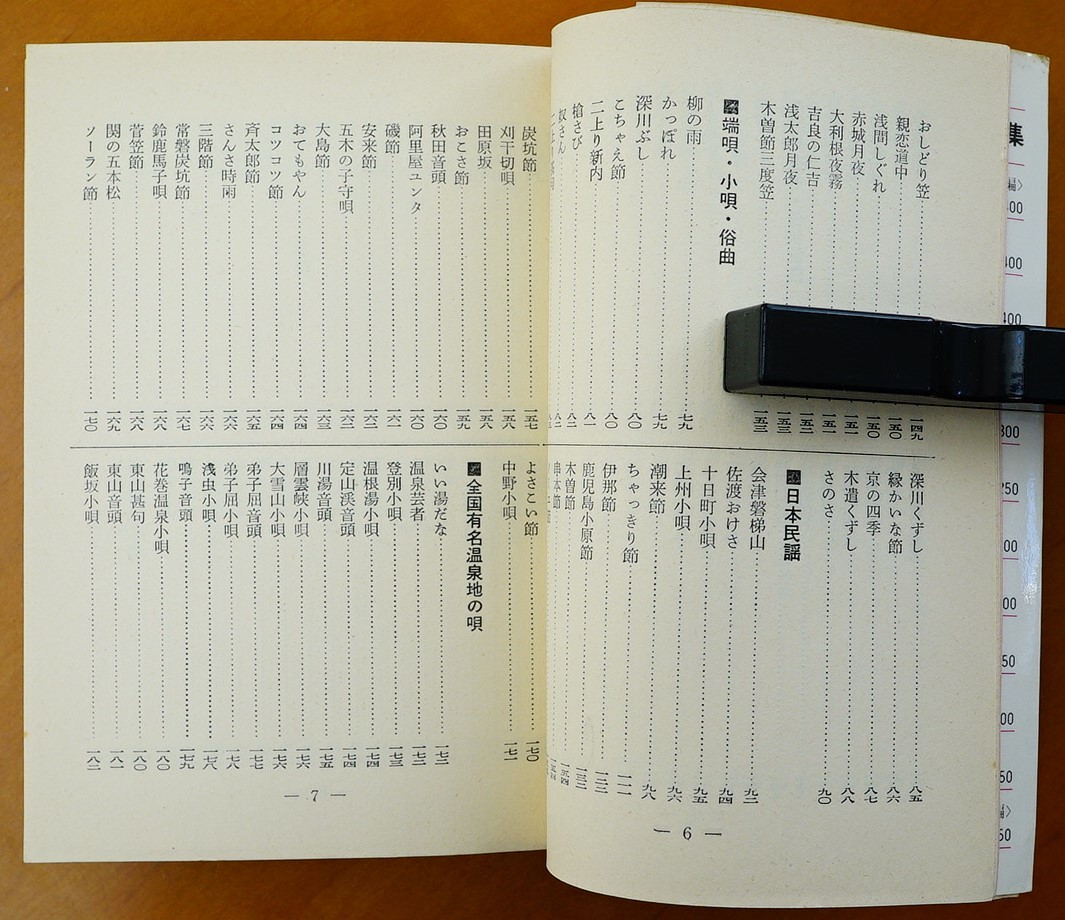 おしどり笠……一四九
親恋道中……一五〇
浅間しぐれ……一五〇
赤城月夜……一五一
大利根夜霧……一五一
吉良の仁吉……一五二
浅太郎月夜……一五三
木曽節三度笠……一五三
端唄・小唄・俗曲
柳の雨……七九
かっぽれ……七九
深川ぶし……八〇
こちゃえ節……八〇
二上り新内……八一
槍さび……八二
奴さん……八二
深川くずし……八五
縁かいな節……八六
京の四季……八七
木遣くずし……八八
さのさ……九〇
日本民謡
会津磐梯山……九二
佐渡おけさ……九四
十日町小唄……九五
上州小唄……九六
潮来節……九八
ちゃっきり節……一一一
伊那節……一三二
鹿児島小原節……一三三
木曽節……一五四
串本節
— 6 —
炭坑節……一五七
刈干切唄……一五八
田原坂……一五八
おこさ節……一五九
秋田音頭……一六〇
阿里屋ユンタ……一六〇
磯節……一六一
安来節……一六二
五木の子守唄……一六二
大島節……一六三
おてもやん……一六四
コツコツ節……一六四
斉太郎節……一六五
さんさ時雨……一六六
三階節……一六六
常磐炭坑節……一六七
鈴鹿馬子唄……一六八
菅笠節……一六八
関の五本松……一六九
ソーラン節……一七〇
よさこい節……一七〇
中野小唄……一七一
全国有名温泉地の唄
いい湯だな……一七二
温泉芸者……一七二
登別小唄……一七三
温根湯小唄……一七四
定山渓音頭……一七四
川湯音頭……一七五
層雲峡小唄……一七六
大雪山小唄……一七六
弟子屈音頭……一七七
弟子屈小唄……一七八
浅虫小唄……一七八
鳴子音頭……一七九
花巻温泉小唄……一八〇
東山甚句……一八〇
東山音頭……一八一
飯坂小唄……一八二
— 7 —
集